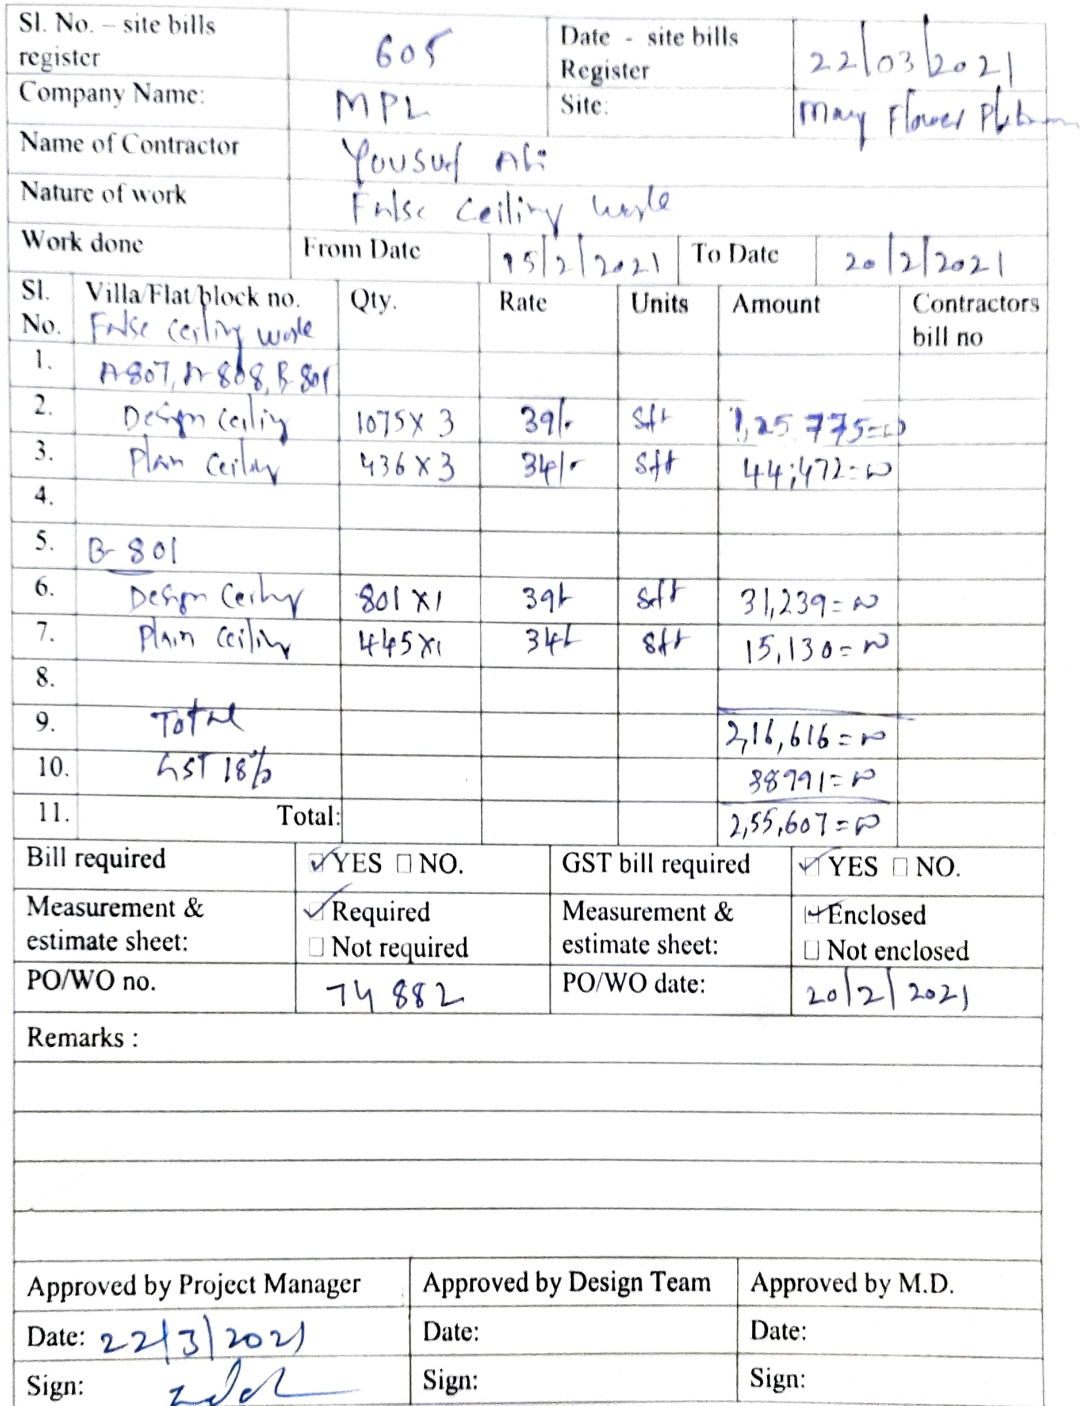 Sl. No. – site bills register 605 Date - site bills Register 22/03/2021
Company Name: MPL Site: May Flower Platinum
Name of Contractor Yousuf Ali
Nature of work False Ceiling work
Work done From Date 15/2/2021 To Date 20/2/2021
Sl. No. Villa/Flat/block no. Qty. Rate Units Amount Contractors bill no
False Ceiling work
1. A-807, A-808, B-801
2. Design Ceiling 1075 X 3 39/- Sft 1,25 775=00
3. Plan Ceiling 436 X 3 34/- Sft 44,472=00
4.
5. B-801
6. Design Ceiling 801 X1 39/- Sft 31,239=00
7. Plain Ceiling 445X1 34/- Sft 15,130=00
8.
9. Total 2,16,616=00
10. GST 18% 38991=00
11. Total: 2,55,607=00
Bill required YES NO. GST bill required YES NO.
Measurement & estimate sheet: Required Measurement & estimate sheet: Enclosed
Not required Not enclosed
PO/WO no. 74882 PO/WO date: 20/2/2021
Remarks :
Approved by Project Manager Approved by Design Team Approved by M.D.
Date: 22/3/2021 Date: Date:
Sign: Sign: Sign: